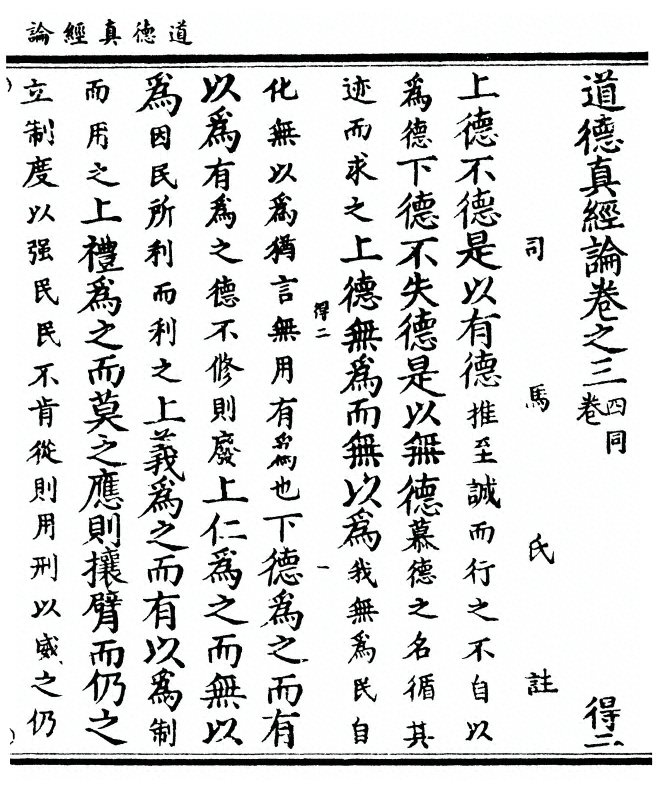 道德真經論
道德真經論卷之三 四同卷 得二
司馬氏註
上德不德是以有德推至誠而行之不自以
爲德下德不失德是以無德慕德之名循其
迹而求之上德無爲而無以爲我無爲民自
得二 一
化無以爲猶言無用有爲也下德爲之而有
以爲有爲之德不修則廢上仁爲之而無以
爲因民所利而利之上義爲之而有以爲制
而用之上禮爲之而莫之應則攘臂而仍之
立制度以强民民不肯從則用刑以威之仍